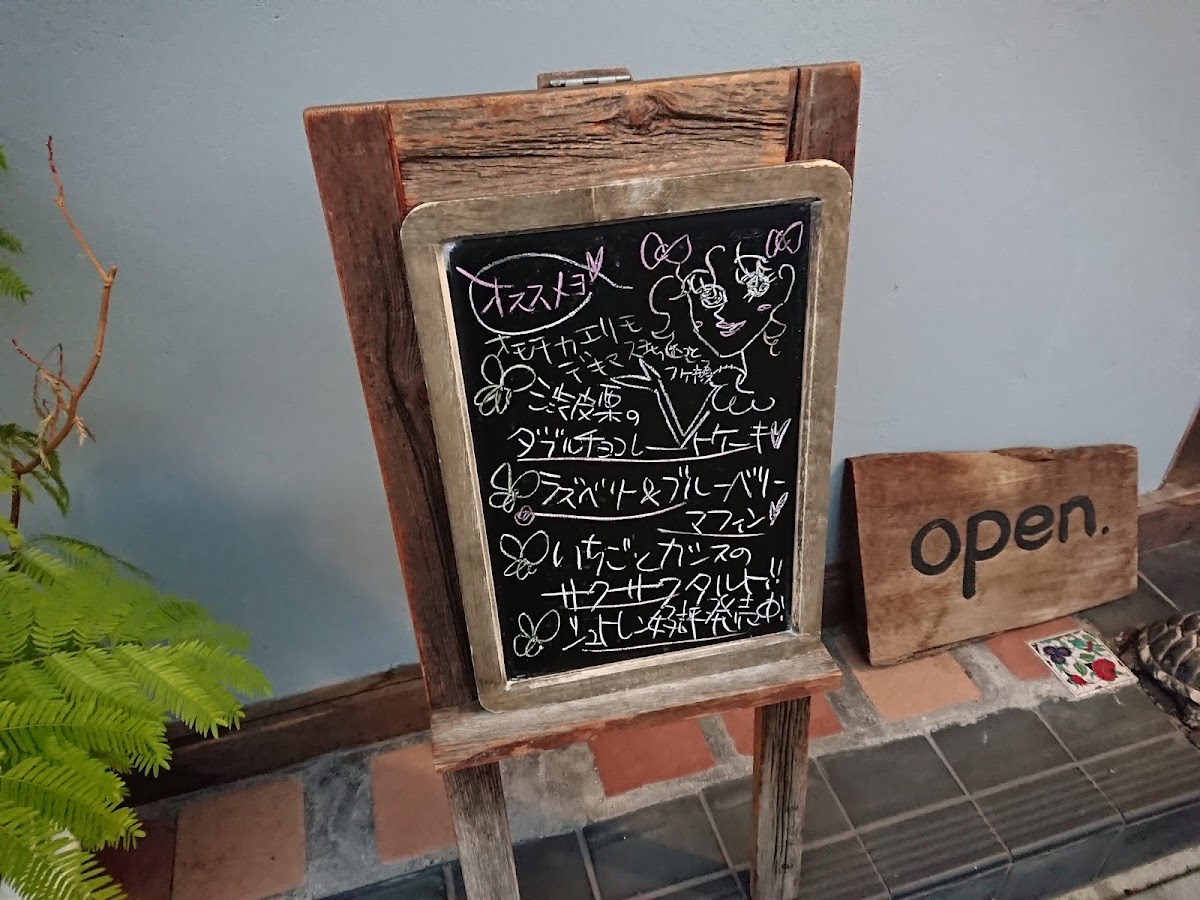 オススメヨ
オモチカエリモ
デキマス
渋皮栗の
ダブルチョコレートケーキ
ラズベリー&ブルーベリー
マフィン
いちごとカシスの
サクサクタルト!!
シュトレン好評発売中!
open.